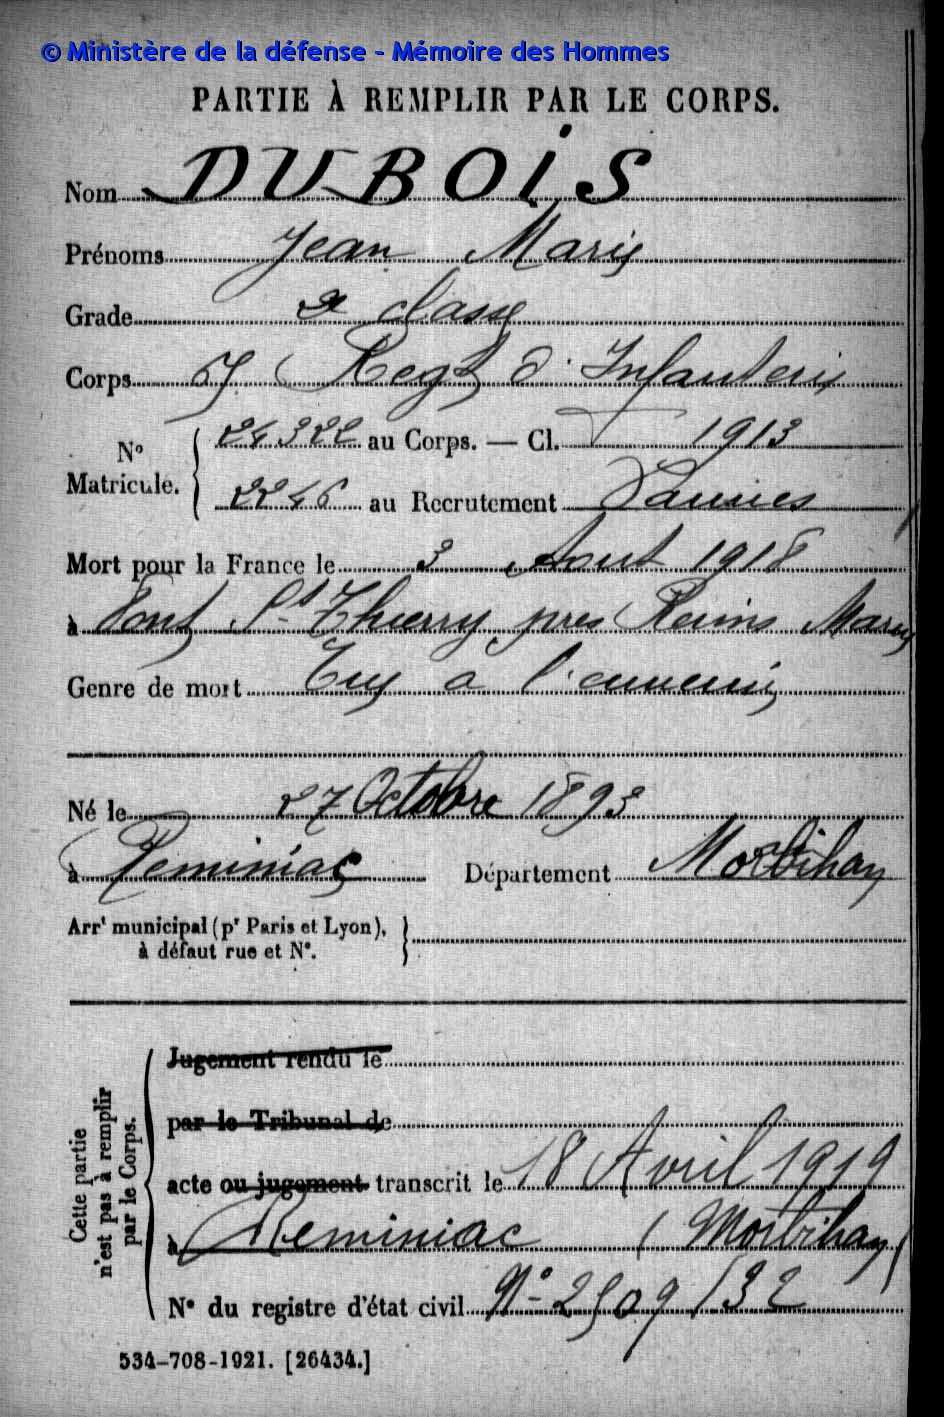 © Ministère de la défense - Mémoire des Hommes
PARTIE À REMPLIR PAR LE CORPS.
Nom DUBOIS
Prénoms Jean Marie
Grade 2e classe
Corps Regt d'Infanterie
No Matricule. 24322 au Corps. — Cl. 1913
2246 au Recrutement Vannes
Mort pour la France le 3 Aout 1918
à St Thierry pres Reims Marne
Genre de mort Tué a l'ennemi
Né le 27 Octobre 1893
à Reminiac Département Morbihan
Arrt municipal (pr Paris et Lyon),
à défaut rue et No.
Cette partie
n'est pas à remplir
par le Corps.
Jugement rendu le
par le Tribunal de
acte ou jugement transcrit le 18 Avril 1919
à Reminiac (Morbihan)
No du registre d'état civil No 2509/32
534-708-1921. [26434.]